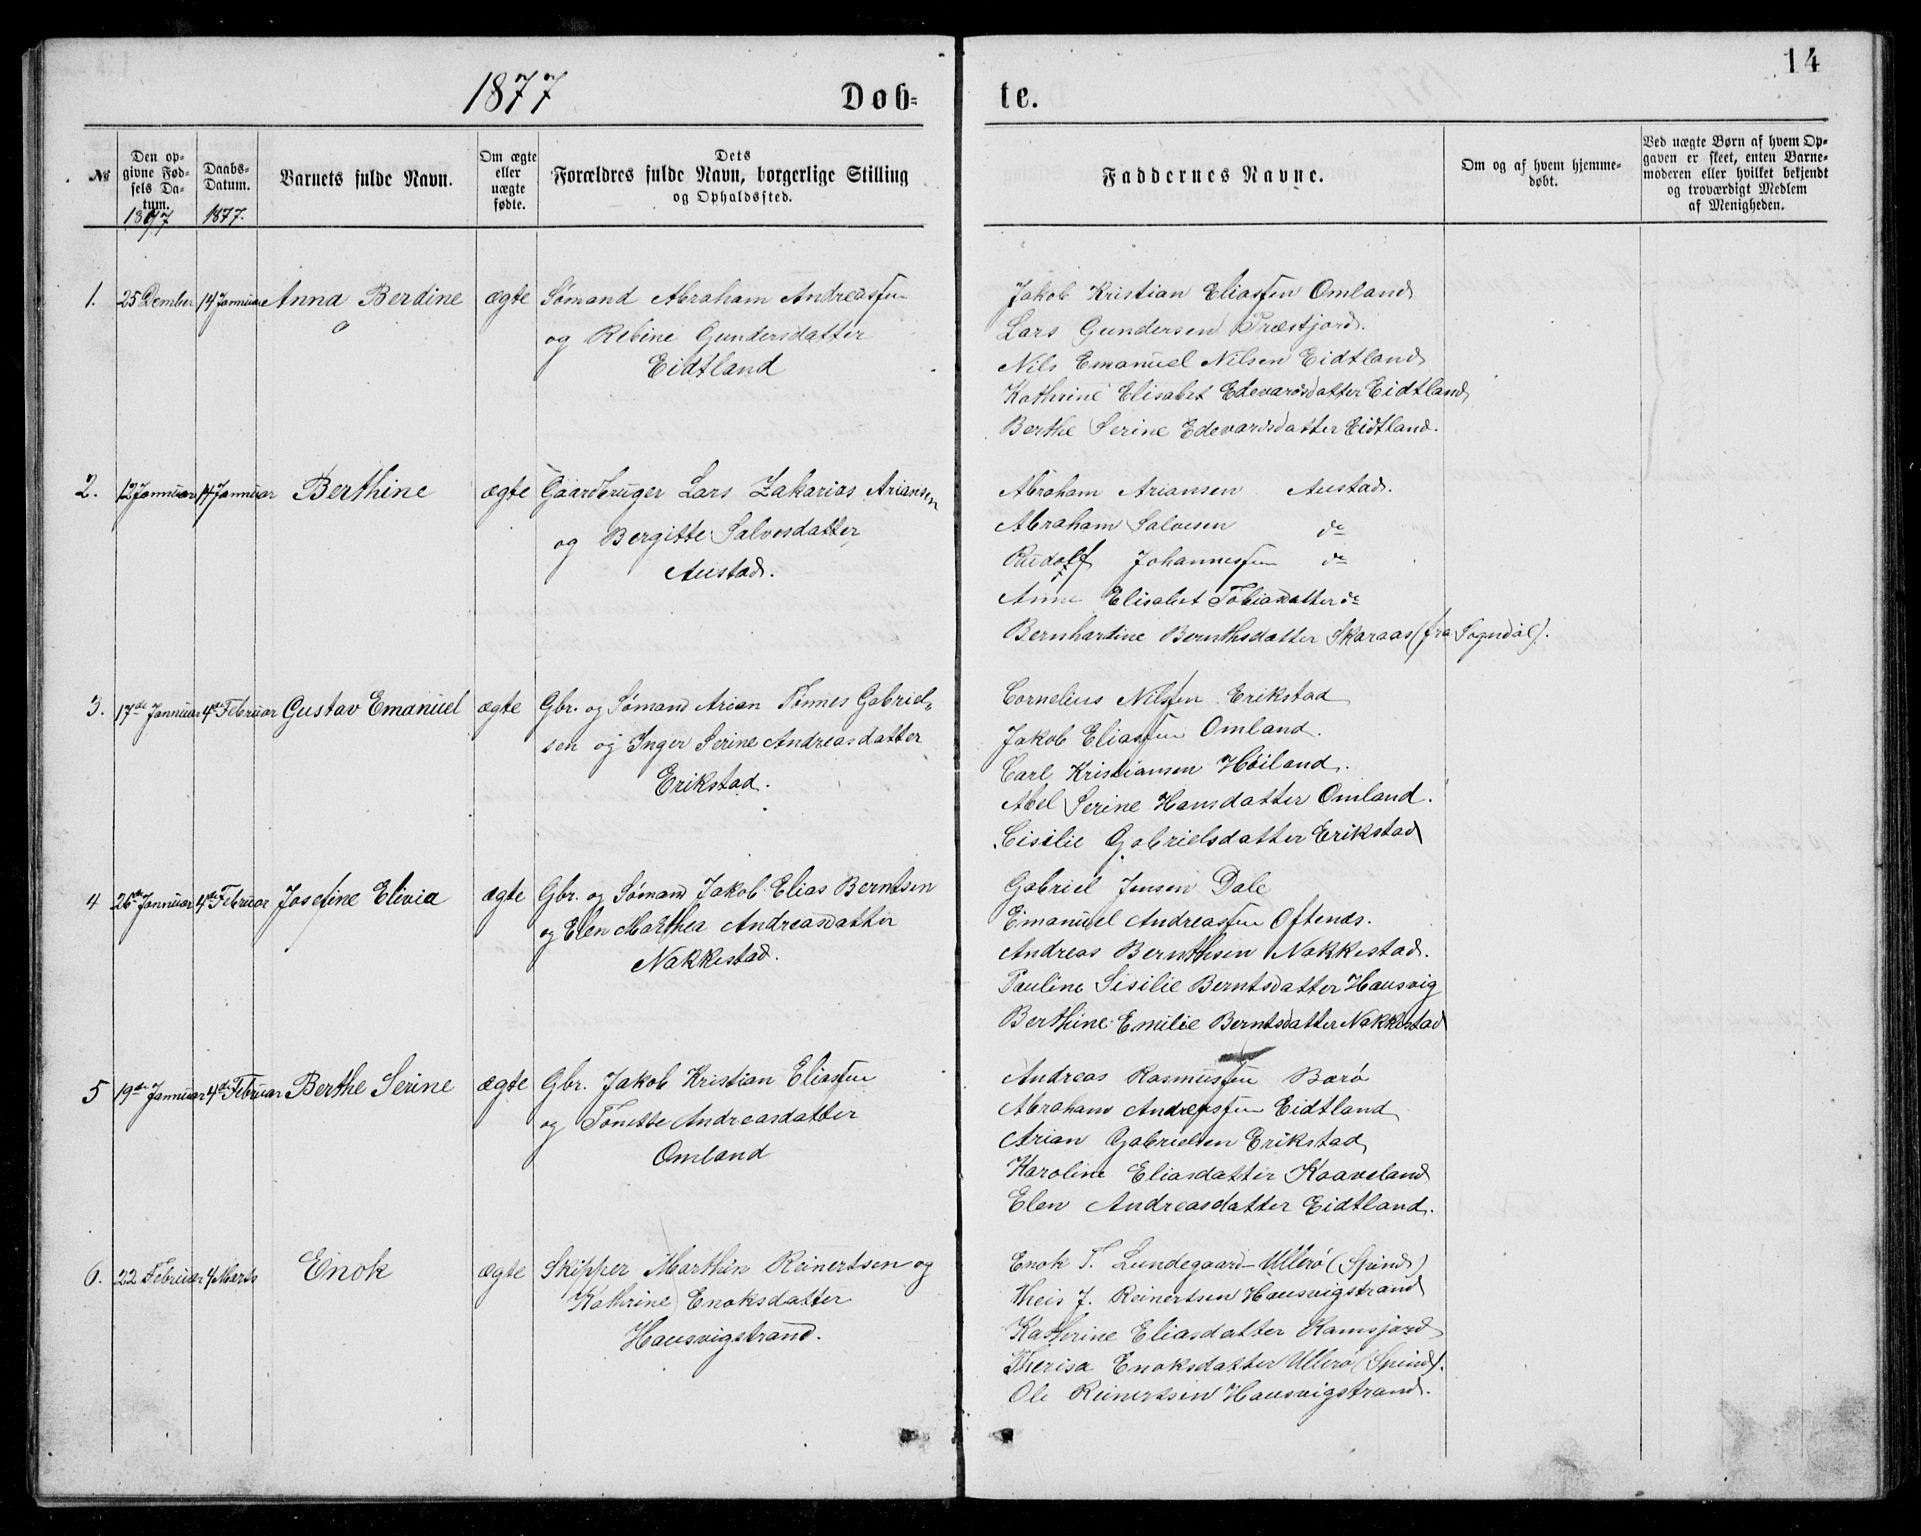 14
1877 Døb- te.
№
Den opgivne Fødsels Datum. 1877
Daabs-Datum. 1877.
Barnets fulde Navn.
Om ægte eller uægte fødte.
Dets Forældres fulde Navn, borgerlige Stilling og Opholdssted.
Faddernes Navne.
Om og af hvem hjemmedøbt.
Ved uægte Børn af hvem Opgaven er skeet, enten Barnemoderen eller hvilket bekjendt og troværdigt Medlem af Menigheden.
1. 25 Dember 14 Januar Anna Berdine ægte Sømand Abraham Andreassen
og Rebine Gundersdatter
Eidtland
Jakob Kristian Eliassen Omland
Lars Gundersen Træstjord.
Nils Emanuel Nilsen Eidtland
Kathrine Elisabet Edevardsdatter Eidtland
Berthe Serine Edevardsdatter Eidtland.
2. 12 Januar 14 Januar Berthine ægte Gaardbruger Lars Zakarias Ariansen
og Bergitte Salvesdatter
Austad.
Abraham Ariansen Austad.
Abraham Salvesen do
Rudolf Johannessen do
Anne Elisabet Tobiasdatter do
Bernhardine Bernthsdatter Skaraas (fra Sogndal).
3. 17de Januar 4de Februar Gustav Emanuel ægte Gbr. og Sømand Arian Tønnes Gabriel-
sen og Inger Serine Andreasdatter
Erikstad.
Cornelius Nilssen Erikstad
Jakob Eliassen Omland.
Carl Kristiansen Høiland.
Abel Serine Hansdatter Omland.
Cisilie Gabrielsdatter Erikstad
4 26de Januar 4de Februar Josefine Elivia ægte Gbr. og Sømand Jakob Elias Berntsen
og Elen Marthea Andreasdatter
Nakkestad.
Gabriel Jensen Dale
Emanuel Andreassen Oftenæs.
Andreas Bernthsen Nakkestad.
Pauline Sisilie Berntsdatter Hausvig
Berthine Emilie Berntsdatter Nakkestad
5 19de Januar 4de Februar Berthe Serine ægte Gbr. Jakob Kristian Eliassen
og Tonette Andreasdatter
Omland
Andreas Rasmussen Barø
Abraham Andreassen Eidtland
Arian Gabrielsen Erikstad
Karoline Eliasdatter Kaaveland
Elen Andreasdatter Eidtland.
6. 22 Februar 4 Marts Enok ægte Skipper Marthin Reinertsen og
Kathrine Enoksdatter
Hausvigstrand.
Enok T. Lundegaard Ullerø (Spind)
Theis J. Reinertsen Hausvigstrand
Kathrine Eliasdatter Ramsjord
Therisa Enoksdatter Ullerø (Spind).
Ole Reinertsen Hausvigstrand.